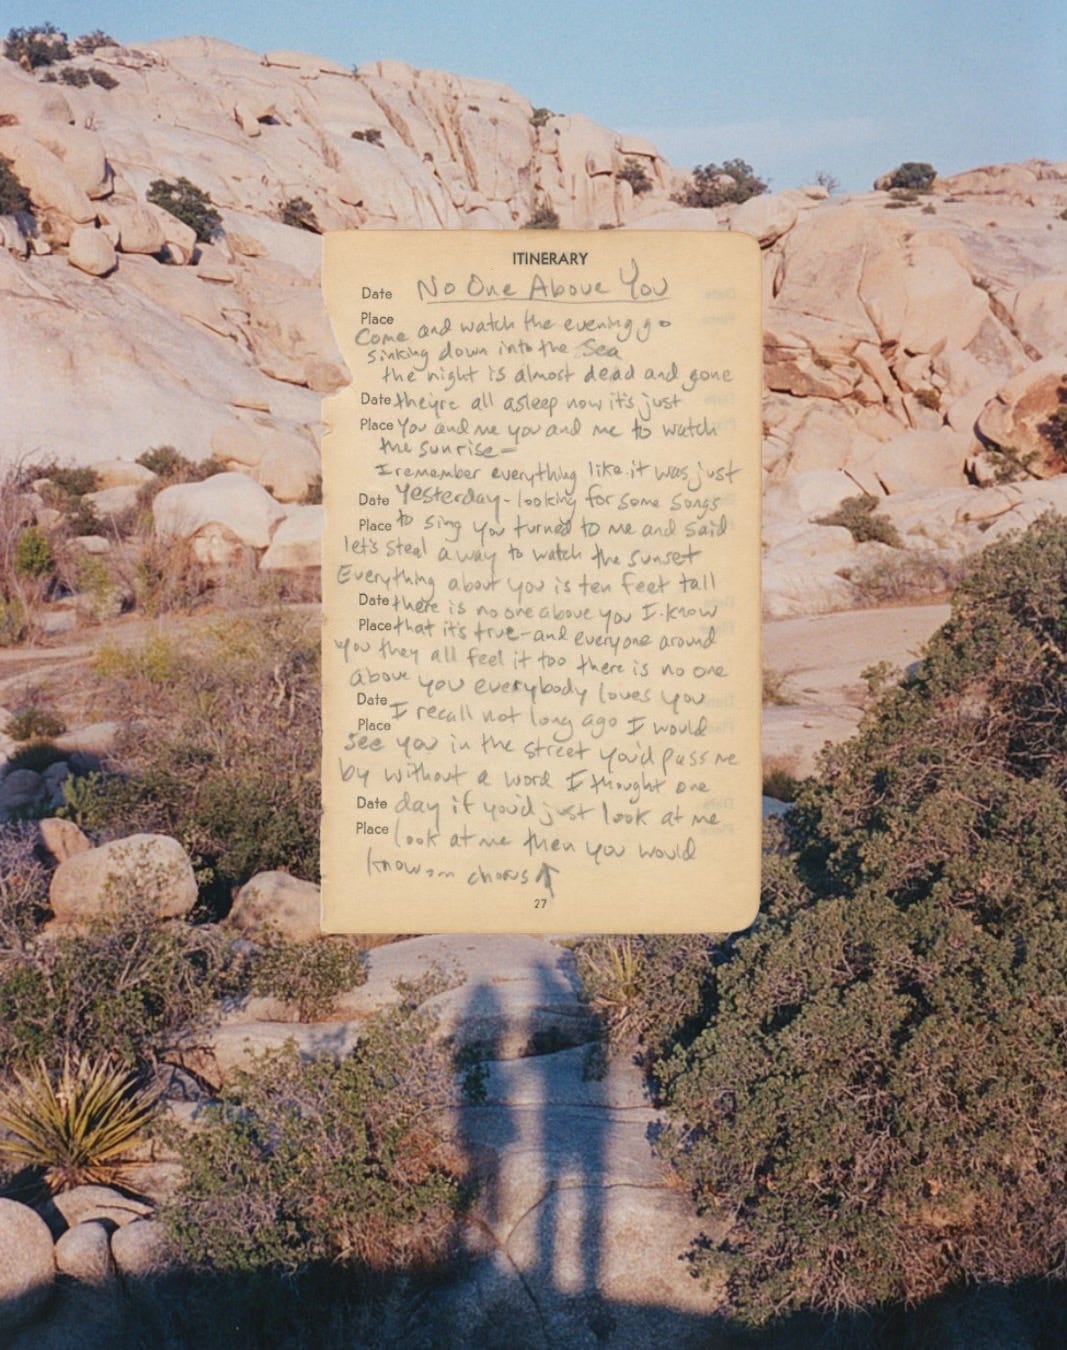 ITINERARY
Date No One Above You
Place
Come and watch the evening go
sinking down into the sea
the night is almost dead and gone
Date they're all asleep now it's just
Place You and me you and me to watch
the sunrise =
I remember everything like it was just
Date Yesterday - looking for some songs
Place to sing you turned to me and said
let's steal away to watch the sunset
Everything about you is ten feet tall
Date there is no one above you I know
Place that it's true - and everyone around
you they all feel it too there is no one
above you everybody loves you
Date I recall not long ago I would
Place
see you in the street you'd pass me
by without a word I thought one
Date day if you'd just look at me
Place look at me then you would
know chorus ↑
27